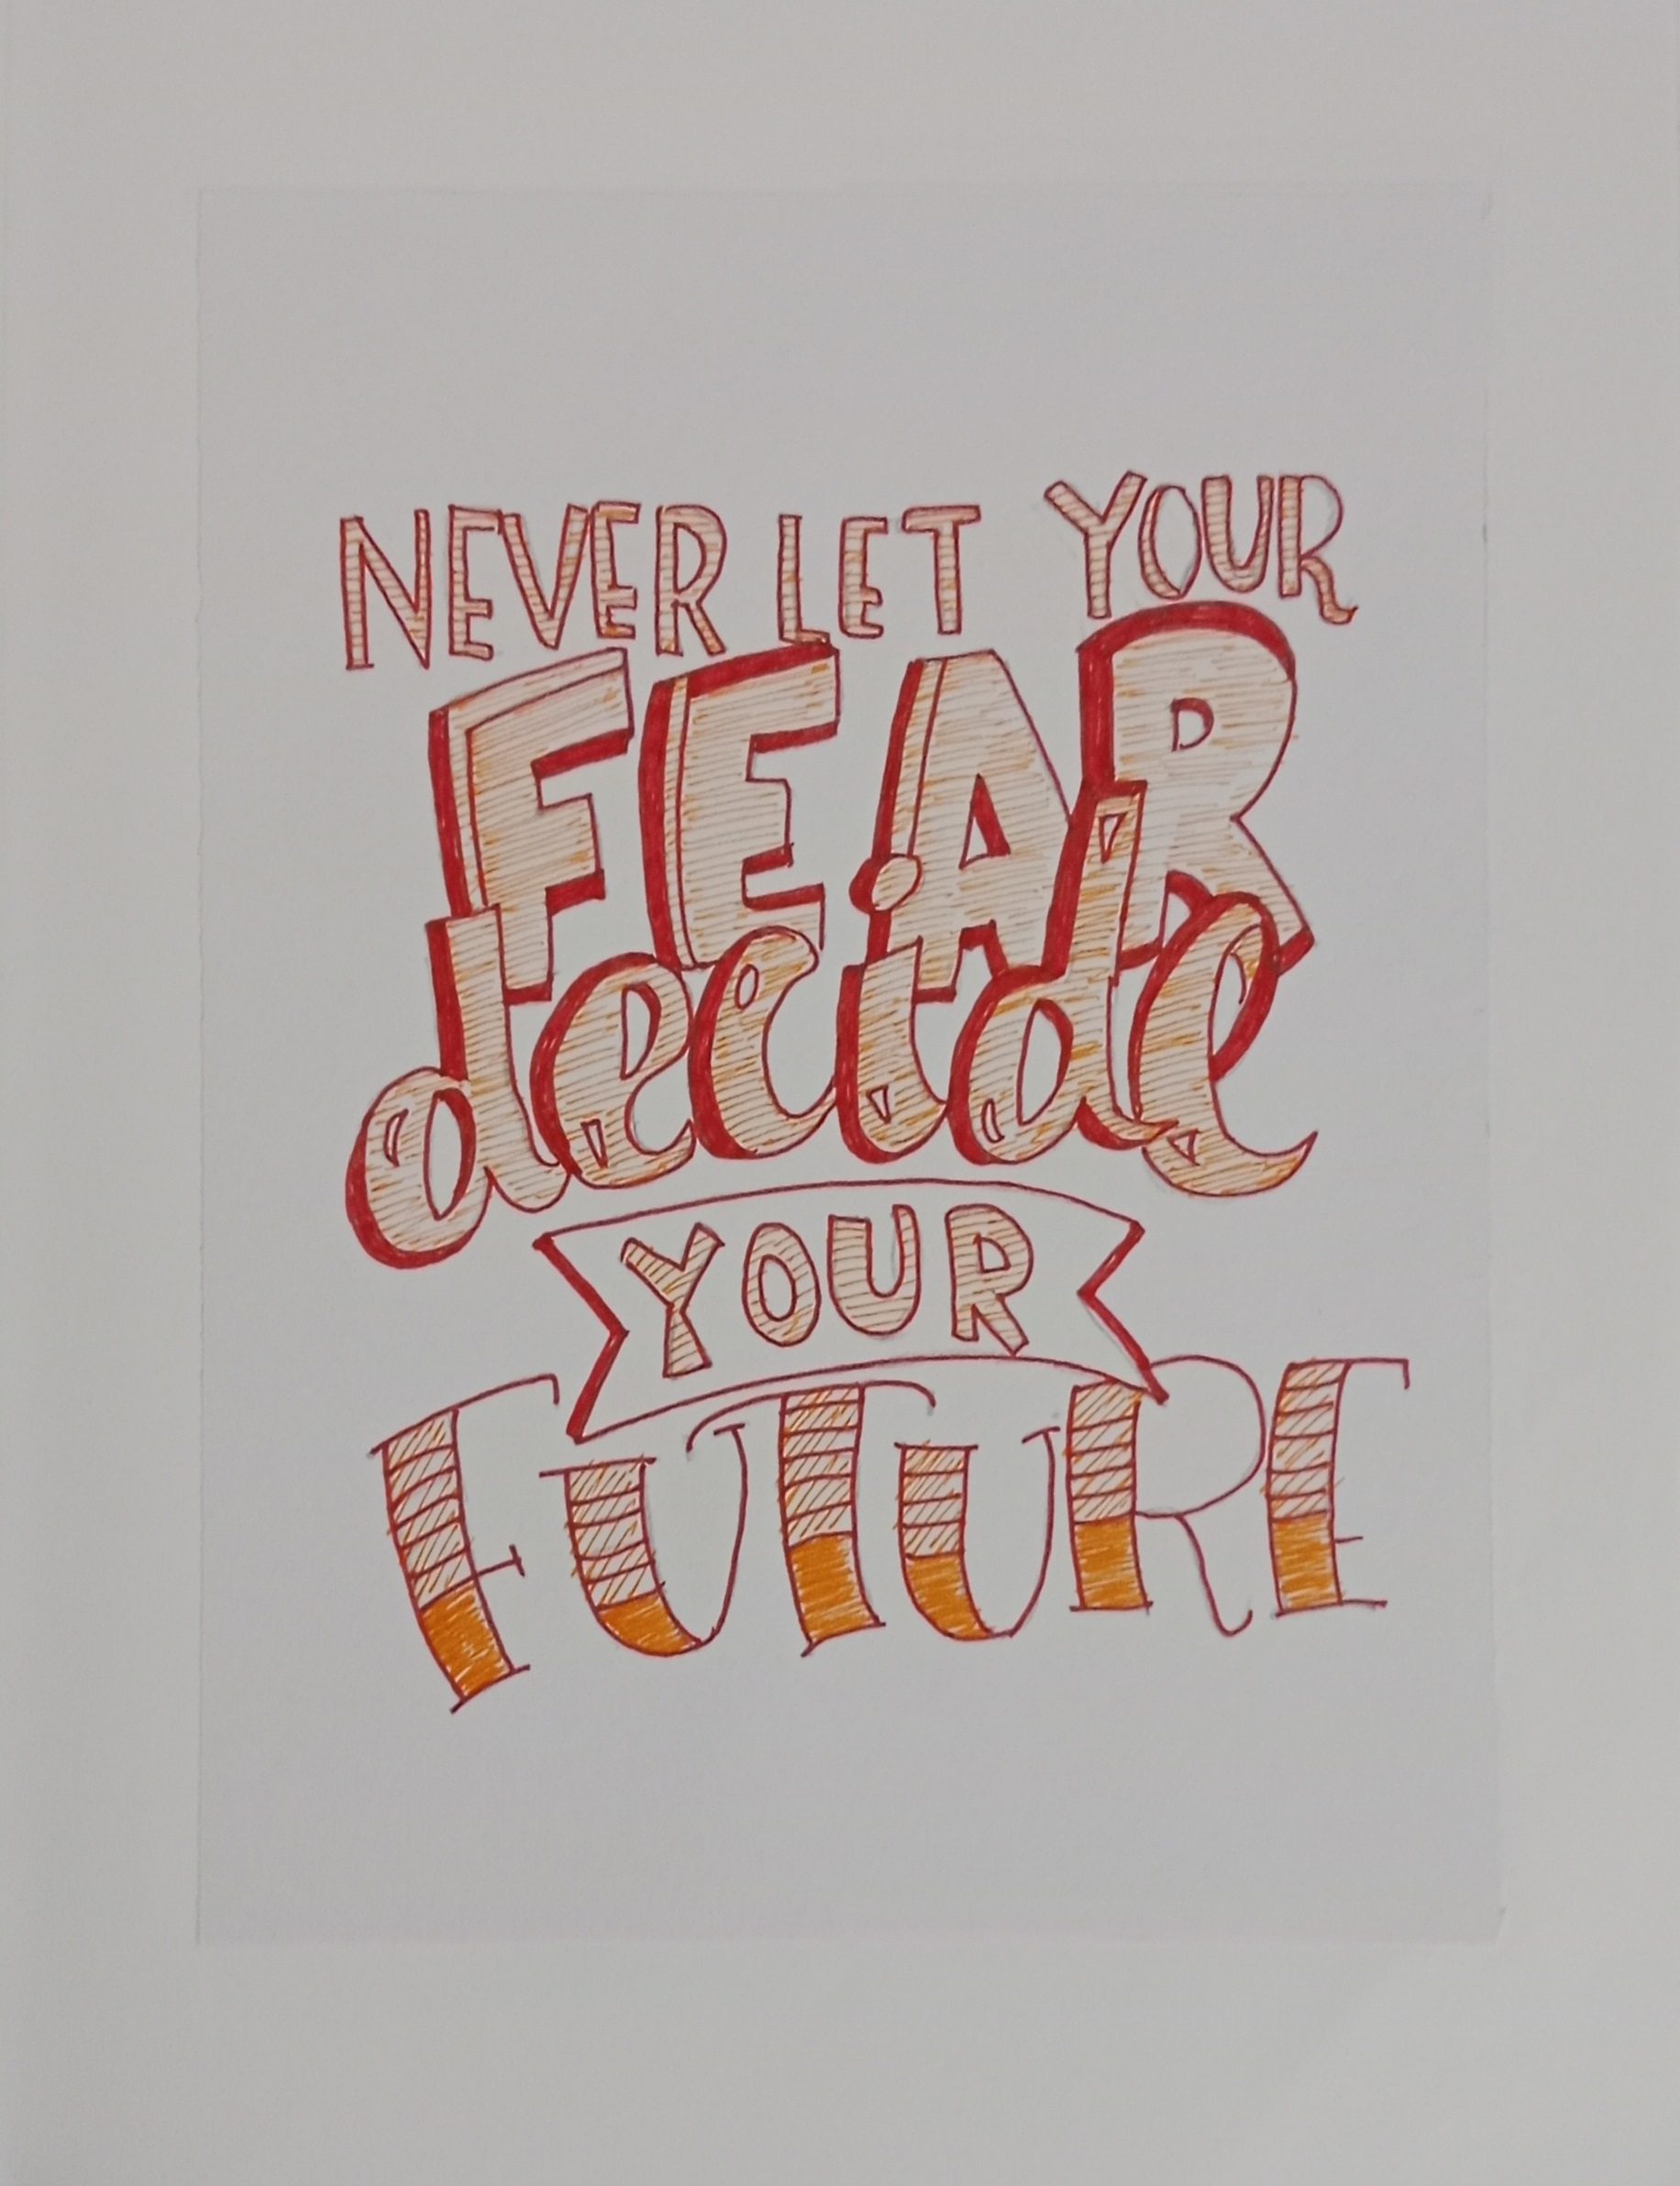 NEVER LET YOUR
FEAR
decide
YOUR
FUTURE